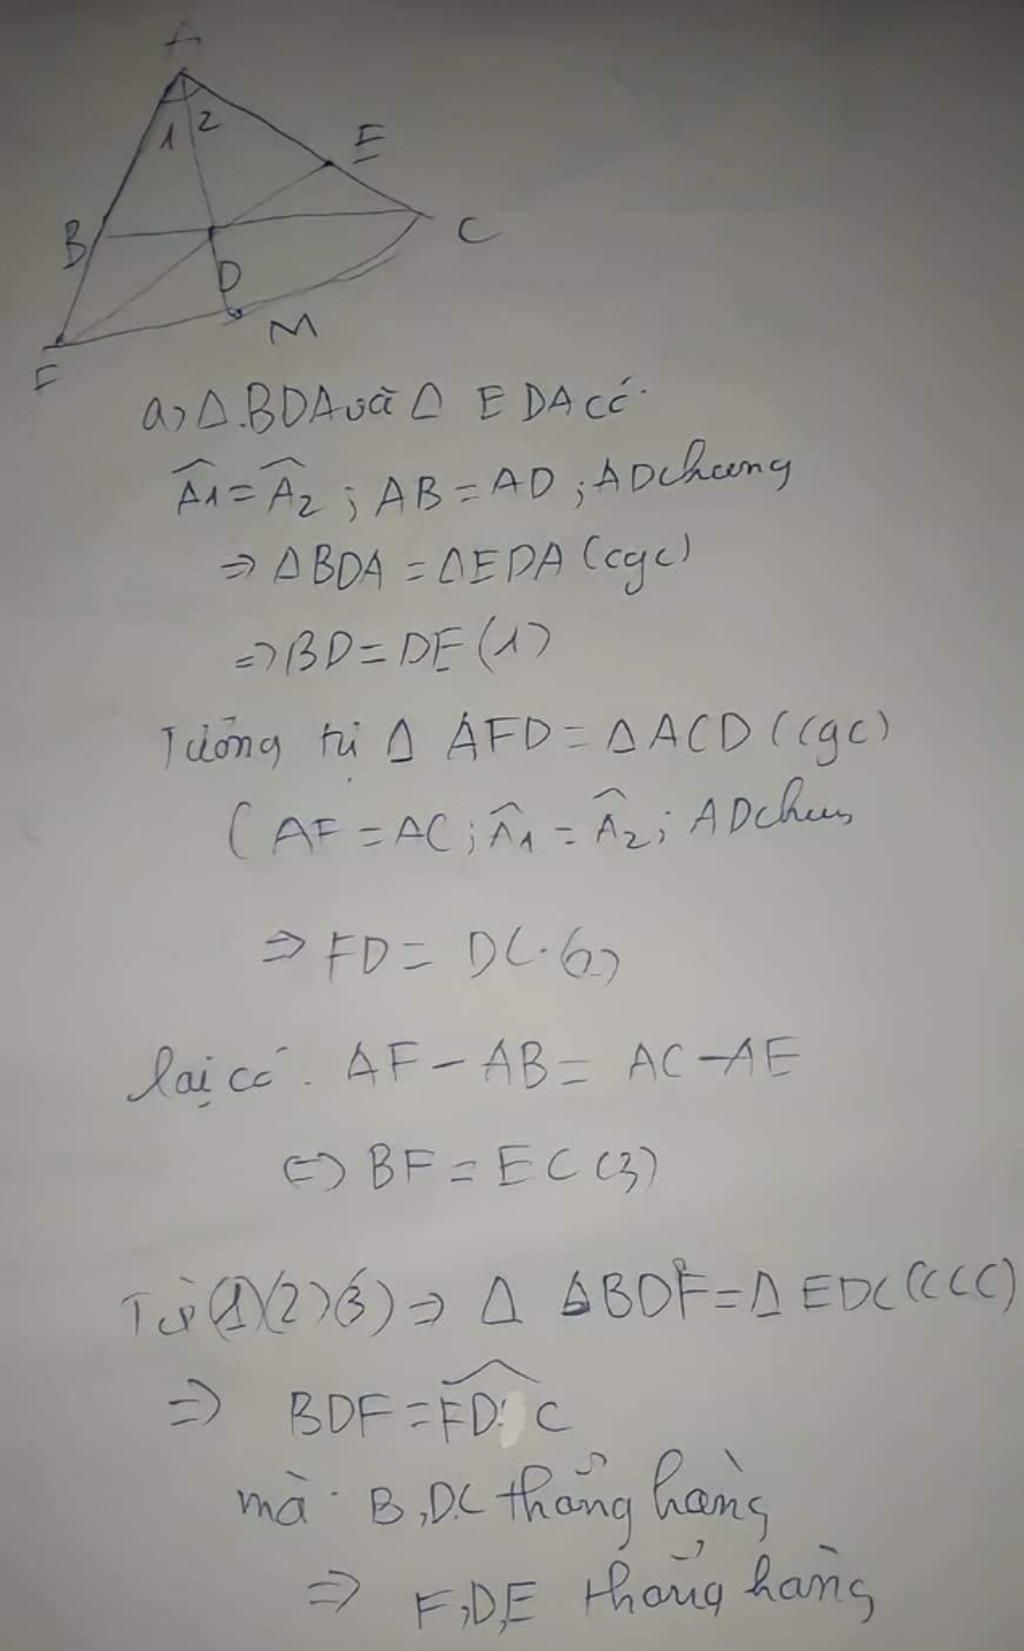 A
1 2
E
B
C
D
M
F
a) Δ.BDA và Δ EDA có
Â1 = Â2 ; AB = AD ; AD chung
⇒ ΔBDA = ΔEDA (cgc)
⇒ BD = DE (1)
Tương tự Δ AFD = Δ ACD (cgc)
(AF = AC ; Â1 = Â2 ; AD chung
⇒ FD = DC.(2)
lại có. AF - AB = AC - AE
⇔ BF = EC (3)
Từ (1)(2)(3) ⇒ Δ ΔBDF = Δ EDC (CCC)
⇒ BDF = \widehat{ED C}
mà B, DC thẳng hàng
⇒ F,D,E thẳng hàng